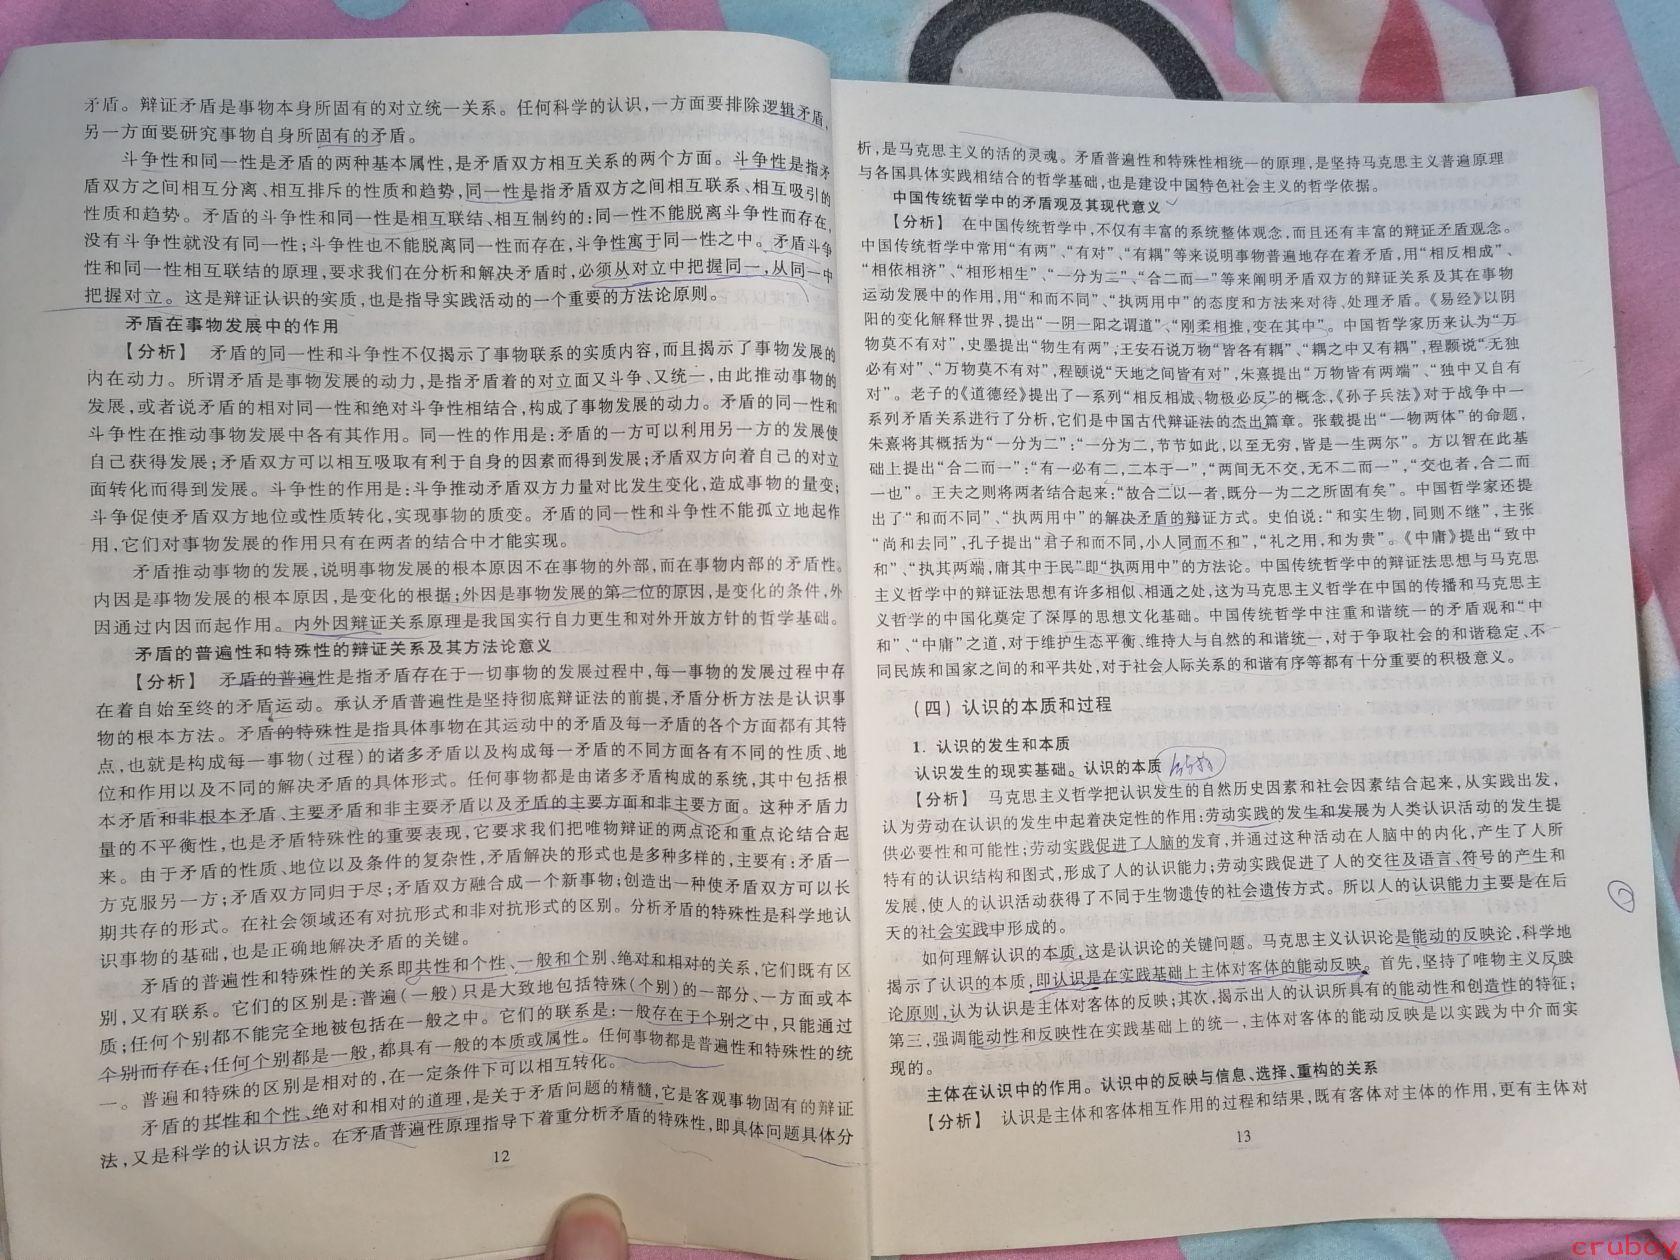 矛盾。辩证矛盾是事物本身所固有的对立统一关系。任何科学的认识,一方面要排除逻辑矛盾,
另一方面要研究事物自身所固有的矛盾。
斗争性和同一性是矛盾的两种基本属性,是矛盾双方相互关系的两个方面。斗争性是指矛
盾双方之间相互分离、相互排斥的性质和趋势,同一性是指矛盾双方之间相互联系、相互吸引的
性质和趋势。矛盾的斗争性和同一性是相互联结、相互制约的:同一性不能脱离斗争性而存在,
没有斗争性就没有同一性;斗争性也不能脱离同一性而存在,斗争性寓于同一性之中。矛盾斗争
性和同一性相互联结的原理,要求我们在分析和解决矛盾时,必须从对立中把握同一,从同一中
把握对立。这是辩证认识的实质,也是指导实践活动的一个重要的方法论原则。
矛盾在事物发展中的作用
【分析】 矛盾的同一性和斗争性不仅揭示了事物联系的实质内容,而且揭示了事物发展的
内在动力。所谓矛盾是事物发展的动力,是指矛盾着的对立面又斗争、又统一,由此推动事物的
发展,或者说矛盾的相对同一性和绝对斗争性相结合,构成了事物发展的动力。矛盾的同一性和
斗争性在推动事物发展中各有其作用。同一性的作用是:矛盾的一方可以利用另一方的发展使
自己获得发展;矛盾双方可以相互吸取有利于自身的因素而得到发展;矛盾双方向着自己的对立
面转化而得到发展。斗争性的作用是:斗争推动矛盾双方力量对比发生变化,造成事物的量变;
斗争促使矛盾双方地位或性质转化,实现事物的质变。矛盾的同一性和斗争性不能孤立地起作
用,它们对事物发展的作用只有在两者的结合中才能实现。
矛盾推动事物的发展,说明事物发展的根本原因不在事物的外部,而在事物内部的矛盾性。
内因是事物发展的根本原因,是变化的根据;外因是事物发展的第二位的原因,是变化的条件,外
因通过内因而起作用。内外因辩证关系原理是我国实行自力更生和对外开放方针的哲学基础。
矛盾的普遍性和特殊性的辩证关系及其方法论意义
【分析】 矛盾的普遍性是指矛盾存在于一切事物的发展过程中,每一事物的发展过程中存
在着自始至终的矛盾运动。承认矛盾普遍性是坚持彻底辩证法的前提,矛盾分析方法是认识事
物的根本方法。矛盾的特殊性是指具体事物在其运动中的矛盾及每一矛盾的各个方面都有其特
点,也就是构成每一事物(过程)的诸多矛盾以及构成每一矛盾的不同方面各有不同的性质、地
位和作用以及不同的解决矛盾的具体形式。任何事物都是由诸多矛盾构成的系统,其中包括根
本矛盾和非根本矛盾、主要矛盾和非主要矛盾以及矛盾的主要方面和非主要方面。这种矛盾力
量的不平衡性,也是矛盾特殊性的重要表现,它要求我们把唯物辩证的两点论和重点论结合起
来。由于矛盾的性质、地位以及条件的复杂性,矛盾解决的形式也是多种多样的,主要有:矛盾一
方克服另一方;矛盾双方同归于尽;矛盾双方融合成一个新事物;创造出一种使矛盾双方可以长
期共存的形式。在社会领域还有对抗形式和非对抗形式的区别。分析矛盾的特殊性是科学地认
识事物的基础,也是正确地解决矛盾的关键。
矛盾的普遍性和特殊性的关系即共性和个性、一般和个别、绝对和相对的关系,它们既有区
别,又有联系。它们的区别是:普遍(一般)只是大致地包括特殊(个别)的一部分、一方面或本
质;任何个别都不能完全地被包括在一般之中。它们的联系是:一般存在于个别之中,只能通过
个别而存在;任何个别都是一般,都具有一般的本质或属性。任何事物都是普遍性和特殊性的统
一。普遍和特殊的区别是相对的,在一定条件下可以相互转化。
矛盾的共性和个性、绝对和相对的道理,是关于矛盾问题的精髓,它是客观事物固有的辩证
法,又是科学的认识方法。在矛盾普遍性原理指导下着重分析矛盾的特殊性,即具体问题具体分
12
析,是马克思主义的活的灵魂。矛盾普遍性和特殊性相统一的原理,是坚持马克思主义普遍原理
与各国具体实践相结合的哲学基础,也是建设中国特色社会主义的哲学依据。
中国传统哲学中的矛盾观及其现代意义
【分析】 在中国传统哲学中,不仅有丰富的系统整体观念,而且还有丰富的辩证矛盾观念。
中国传统哲学中常用“有两”、“有对”、“有耦”等来说明事物普遍地存在着矛盾,用“相反相成”、
“相依相济”、“相形相生”、“一分为二”、“合二而一”等来阐明矛盾双方的辩证关系及其在事物
运动发展中的作用,用“和而不同”、“执两用中”的态度和方法来对待、处理矛盾。《易经》以阴
阳的变化解释世界,提出“一阴一阳之谓道”、“刚柔相推,变在其中”。中国哲学家历来认为“万
物莫不有对”,史墨提出“物生有两”;王安石说万物“皆各有耦”、“耦之中又有耦”,程颢说“无独
必有对”、“万物莫不有对”,程颐说“天地之间皆有对”,朱熹提出“万物皆有两端”、“独中又自有
对”。老子的《道德经》提出了一系列“相反相成、物极必反”的概念,《孙子兵法》对于战争中一
系列矛盾关系进行了分析,它们是中国古代辩证法的杰出篇章。张载提出“一物两体”的命题,
朱熹将其概括为“一分为二”:“一分为二,节节如此,以至无穷,皆是一生两尔”。方以智在此基
础上提出“合二而一”:“有一必有二,二本于一”,“两间无不交,无不二而一”,“交也者,合二而
一也”。王夫之则将两者结合起来:“故合二以一者,既分一为二之所固有矣”。中国哲学家还提
出了“和而不同”、“执两用中”的解决矛盾的辩证方式。史伯说:“和实生物,同则不继”,主张
“尚和去同”,孔子提出“君子和而不同,小人同而不和”,“礼之用,和为贵”。《中庸》提出“致中
和”、“执其两端,庸其中于民”即“执两用中”的方法论。中国传统哲学中的辩证法思想与马克思
主义哲学中的辩证法思想有许多相似、相通之处,这为马克思主义哲学在中国的传播和马克思主
义哲学的中国化奠定了深厚的思想文化基础。中国传统哲学中注重和谐统一的矛盾观和“中
和”、“中庸”之道,对于维护生态平衡、维持人与自然的和谐统一,对于争取社会的和谐稳定、不
同民族和国家之间的和平共处,对于社会人际关系的和谐有序等都有十分重要的积极意义。
(四) 认识的本质和过程
1. 认识的发生和本质
认识发生的现实基础。认识的本质
【分析】 马克思主义哲学把认识发生的自然历史因素和社会因素结合起来,从实践出发,
认为劳动在认识的发生中起着决定性的作用:劳动实践的发生和发展为人类认识活动的发生提
供必要性和可能性;劳动实践促进了人脑的发育,并通过这种活动在人脑中的内化,产生了人所
特有的认识结构和图式,形成了人的认识能力;劳动实践促进了人的交往及语言、符号的产生和
发展,使人的认识活动获得了不同于生物遗传的社会遗传方式。所以人的认识能力主要是在后
天的社会实践中形成的。
如何理解认识的本质,这是认识论的关键问题。马克思主义认识论是能动的反映论,科学地
揭示了认识的本质,即认识是在实践基础上主体对客体的能动反映。首先,坚持了唯物主义反映
论原则,认为认识是主体对客体的反映;其次,揭示出人的认识所具有的能动性和创造性的特征;
第三,强调能动性和反映性在实践基础上的统一,主体对客体的能动反映是以实践为中介而实
现的。
主体在认识中的作用。认识中的反映与信息、选择、重构的关系
【分析】 认识是主体和客体相互作用的过程和结果,既有客体对主体的作用,更有主体对
13
cruboy